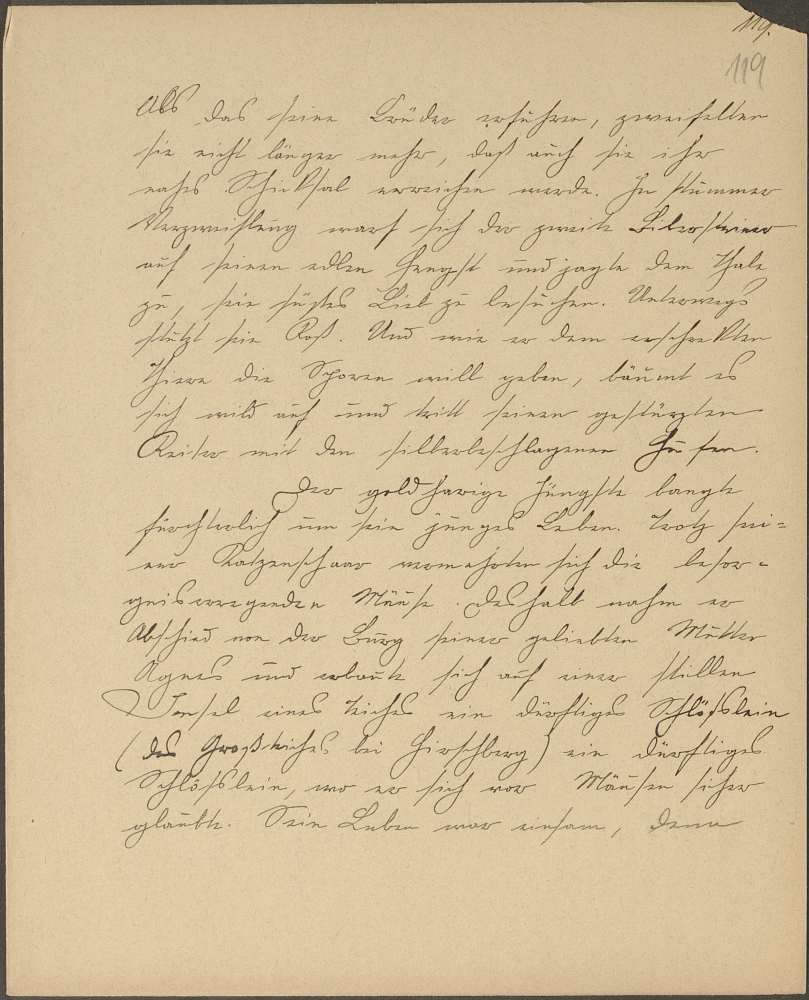 119.
119
Als das seine Brüder erfuhren, zweifelten
sie nicht länger mehr, daß auch sie ihr
nahes Schicksal erreichen werde. In stummer
Verzweiflung warf sich der zweite Bibersteiner
auf seinen edlen Hengst und jagte dem Thale
zu, sein süßes Lieb zu besuchen. Unterwegs
stützt sein Roß. Und wie er dem erschreckten
Thiere die Sporen will geben, bäumt es
sich wild auf und tritt seinen gestürzten
Reiter mit den silberbeschlagenen Hufen.
Der goldharige Jüngste bangte
fürchterlich um sein junges Leben. Trotz sei=
ner Katzenschaar vermehrten sich die besor=
gniserregenden Mäuse. Deshalb nahm er
Abschied von der Burg seiner geliebten Mutter
Agnes und erbaute sich auf einer stillen
Insel eines Teiches ein dürftiges Schlößslein
(des Großteiches bei Hirschberg) ein dürftiges
Schlößslein, wo er sich vor Mäusen sicher
glaubte. Sein Leben war einsam, denn